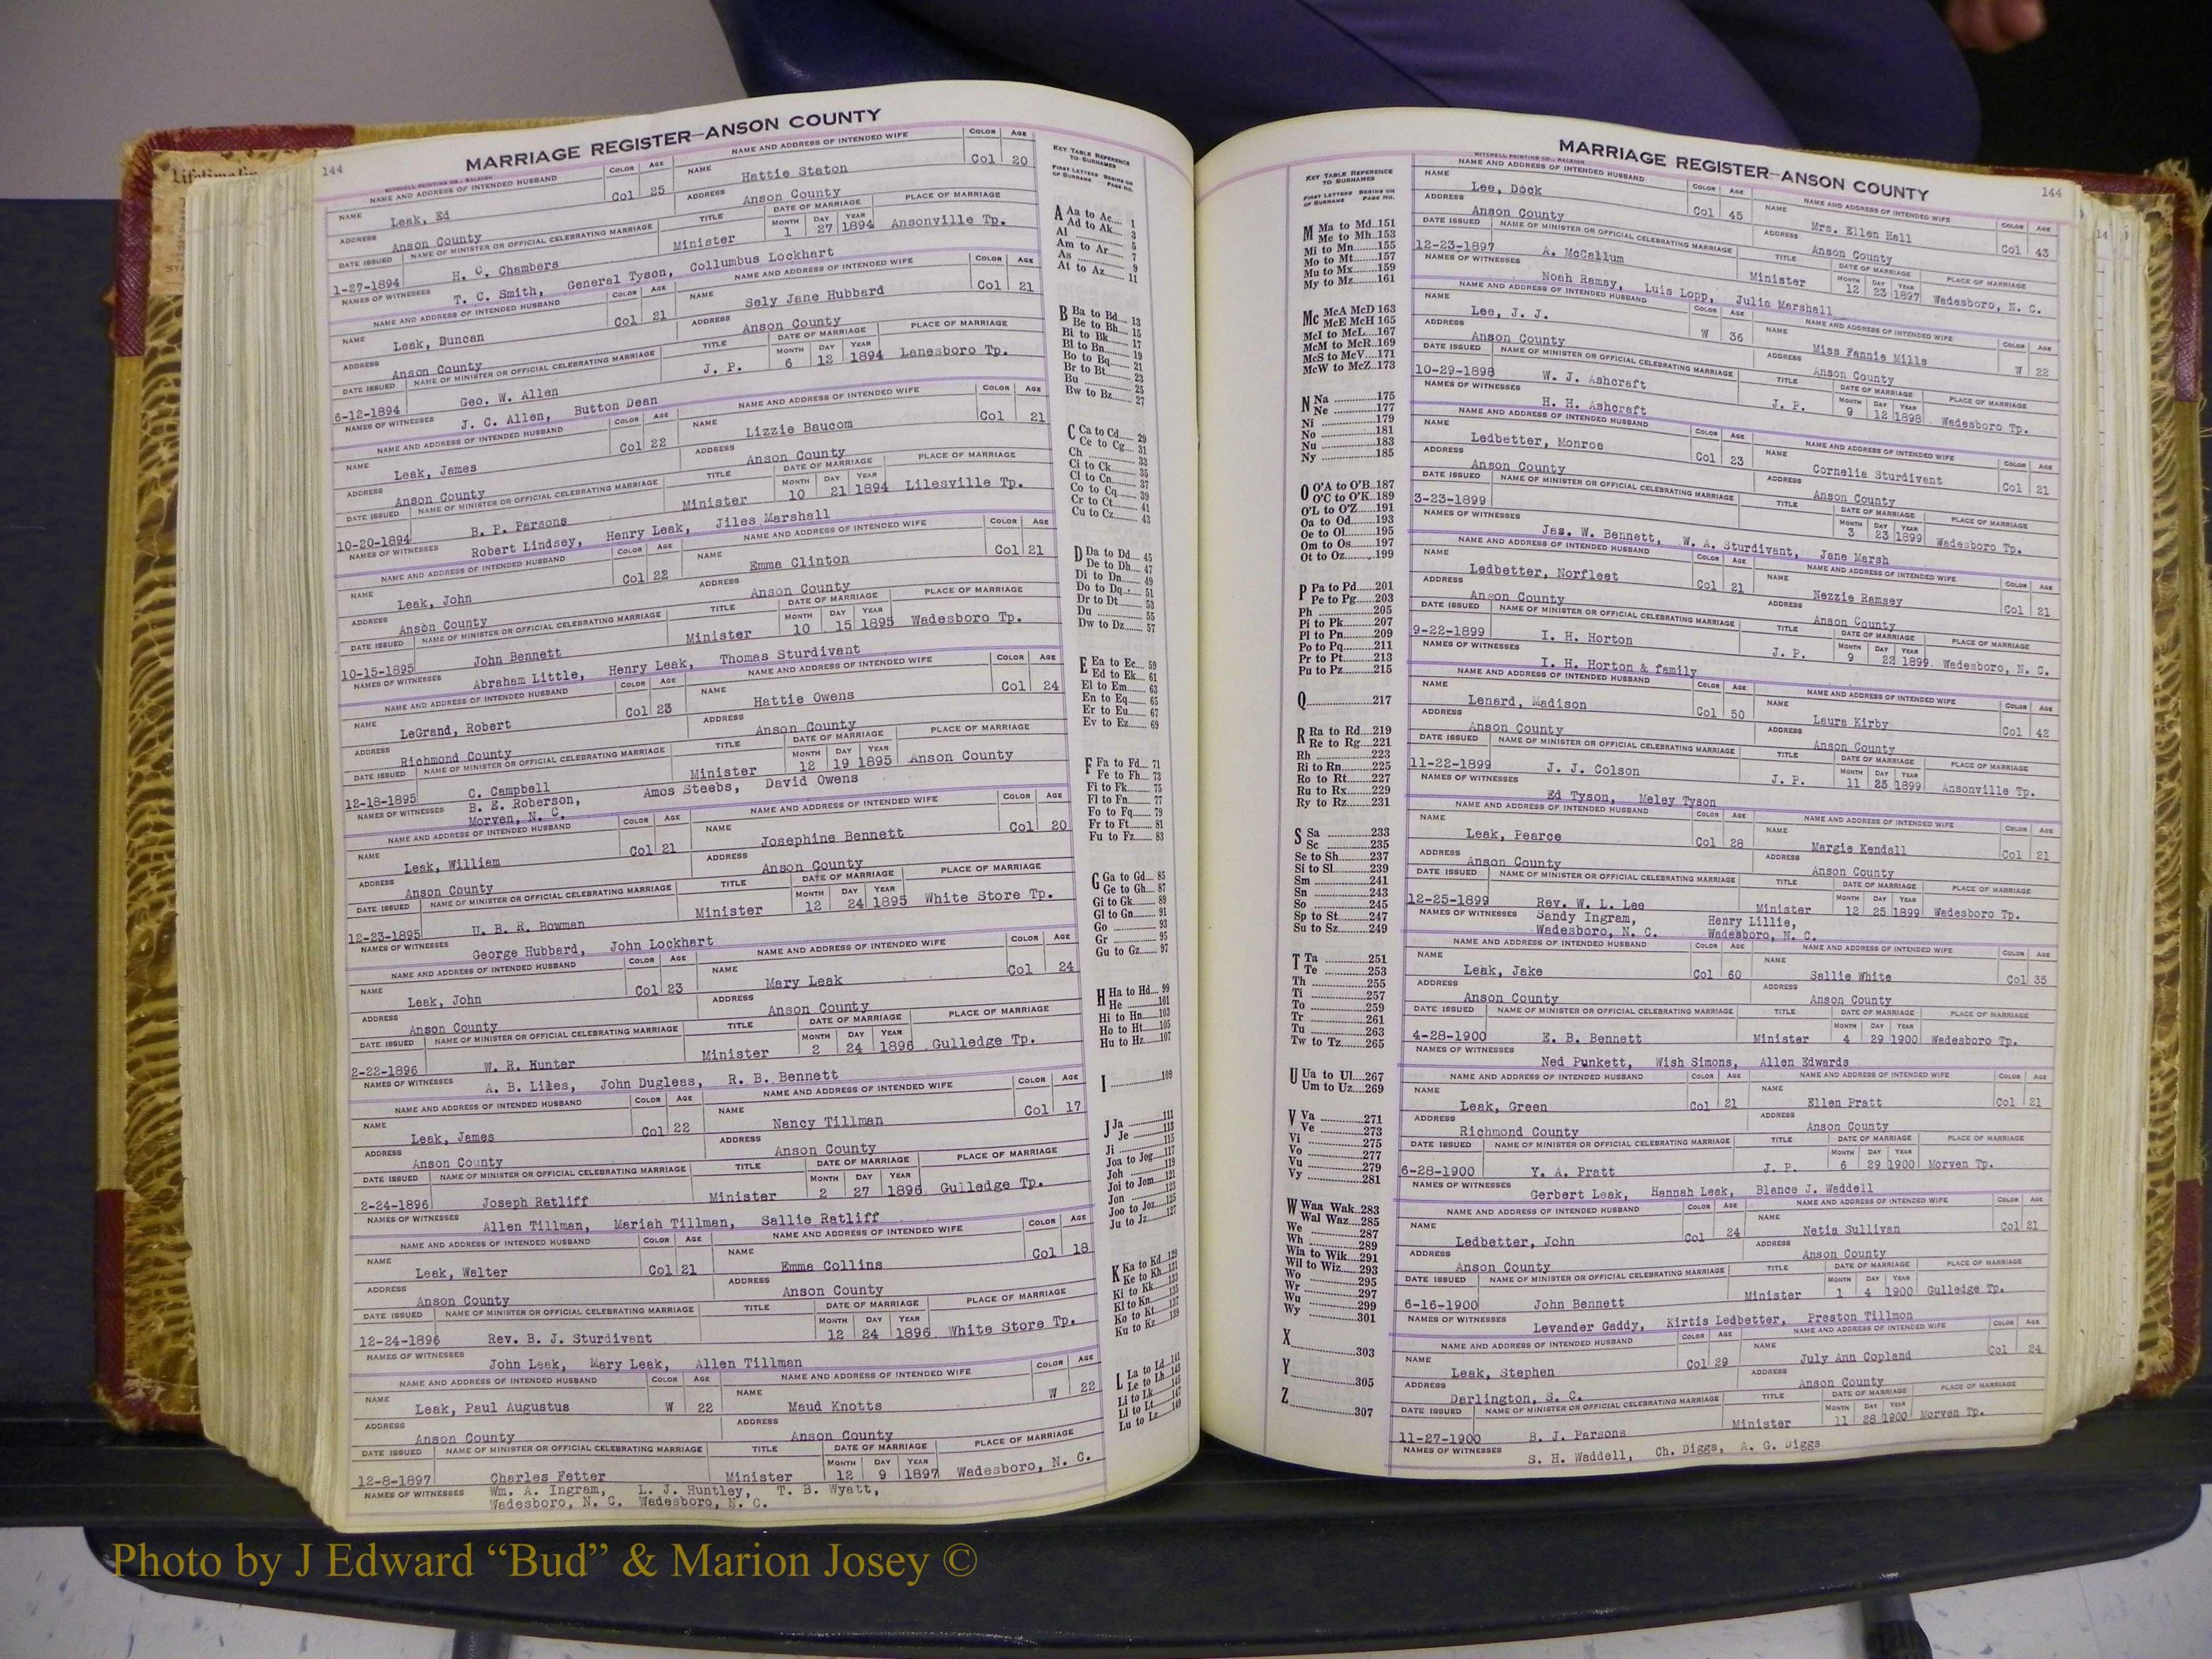 Lifetime
144
MARRIAGE REGISTER—ANSON COUNTY
MITCHELL PRINTING CO., RALEIGH
NAME AND ADDRESS OF INTENDED HUSBAND COLOR AGE NAME AND ADDRESS OF INTENDED WIFE COLOR AGE
NAME Leak, Ed Col 25 NAME Hattie Staton Col 20
ADDRESS Anson County ADDRESS Anson County
DATE ISSUED NAME OF MINISTER OR OFFICIAL CELEBRATING MARRIAGE TITLE DATE OF MARRIAGE MONTH DAY YEAR PLACE OF MARRIAGE
1-27-1894 H. C. Chambers Minister 1 27 1894 Ansonville Tp.
NAMES OF WITNESSES T. C. Smith, General Tyson, Collumbus Lockhart
NAME AND ADDRESS OF INTENDED HUSBAND COLOR AGE NAME AND ADDRESS OF INTENDED WIFE COLOR AGE
NAME Leak, Duncan Col 21 NAME Sely Jane Hubbard Col 21
ADDRESS Anson County ADDRESS Anson County
DATE ISSUED NAME OF MINISTER OR OFFICIAL CELEBRATING MARRIAGE TITLE DATE OF MARRIAGE MONTH DAY YEAR PLACE OF MARRIAGE
6-12-1894 Geo. W. Allen J. P. 6 12 1894 Lanesboro Tp.
NAMES OF WITNESSES J. C. Allen, Button Dean
NAME AND ADDRESS OF INTENDED HUSBAND COLOR AGE NAME AND ADDRESS OF INTENDED WIFE COLOR AGE
NAME Leak, James Col 22 NAME Lizzie Baucom Col 21
ADDRESS Anson County ADDRESS Anson County
DATE ISSUED NAME OF MINISTER OR OFFICIAL CELEBRATING MARRIAGE TITLE DATE OF MARRIAGE MONTH DAY YEAR PLACE OF MARRIAGE
10-20-1894 B. P. Parsons Minister 10 21 1894 Lilesville Tp.
NAMES OF WITNESSES Robert Lindsey, Henry Leak, Jiles Marshall
NAME AND ADDRESS OF INTENDED HUSBAND COLOR AGE NAME AND ADDRESS OF INTENDED WIFE COLOR AGE
NAME Leak, John Col 22 NAME Emma Clinton Col 21
ADDRESS Anson County ADDRESS Anson County
DATE ISSUED NAME OF MINISTER OR OFFICIAL CELEBRATING MARRIAGE TITLE DATE OF MARRIAGE MONTH DAY YEAR PLACE OF MARRIAGE
10-15-1895 John Bennett Minister 10 15 1895 Wadesboro Tp.
NAMES OF WITNESSES Abraham Little, Henry Leak, Thomas Sturdivant
NAME AND ADDRESS OF INTENDED HUSBAND COLOR AGE NAME AND ADDRESS OF INTENDED WIFE COLOR AGE
NAME LeGrand, Robert Col 23 NAME Hattie Owens Col 24
ADDRESS Richmond County ADDRESS Anson County
DATE ISSUED NAME OF MINISTER OR OFFICIAL CELEBRATING MARRIAGE TITLE DATE OF MARRIAGE MONTH DAY YEAR PLACE OF MARRIAGE
12-18-1895 C. Campbell Minister 12 19 1895 Anson County
NAMES OF WITNESSES B. E. Roberson, Amos Steebs, David Owens
Morven, N. C.
NAME AND ADDRESS OF INTENDED HUSBAND COLOR AGE NAME AND ADDRESS OF INTENDED WIFE COLOR AGE
NAME Leak, William Col 21 NAME Josephine Bennett Col 20
ADDRESS Anson County ADDRESS Anson County
DATE ISSUED NAME OF MINISTER OR OFFICIAL CELEBRATING MARRIAGE TITLE DATE OF MARRIAGE MONTH DAY YEAR PLACE OF MARRIAGE
12-23-1895 U. B. R. Bowman Minister 12 24 1895 White Store Tp.
NAMES OF WITNESSES George Hubbard, John Lockhart
NAME AND ADDRESS OF INTENDED HUSBAND COLOR AGE NAME AND ADDRESS OF INTENDED WIFE COLOR AGE
NAME Leak, John Col 23 NAME Mary Leak Col 24
ADDRESS Anson County ADDRESS Anson County
DATE ISSUED NAME OF MINISTER OR OFFICIAL CELEBRATING MARRIAGE TITLE DATE OF MARRIAGE MONTH DAY YEAR PLACE OF MARRIAGE
2-22-1896 W. R. Hunter Minister 2 24 1896 Gulledge Tp.
NAMES OF WITNESSES A. B. Liles, John Dugless, R. B. Bennett
NAME AND ADDRESS OF INTENDED HUSBAND COLOR AGE NAME AND ADDRESS OF INTENDED WIFE COLOR AGE
NAME Leak, James Col 22 NAME Nancy Tillman Col 17
ADDRESS Anson County ADDRESS Anson County
DATE ISSUED NAME OF MINISTER OR OFFICIAL CELEBRATING MARRIAGE TITLE DATE OF MARRIAGE MONTH DAY YEAR PLACE OF MARRIAGE
2-24-1896 Joseph Ratliff Minister 2 27 1896 Gulledge Tp.
NAMES OF WITNESSES Allen Tillman, Mariah Tillman, Sallie Ratliff
NAME AND ADDRESS OF INTENDED HUSBAND COLOR AGE NAME AND ADDRESS OF INTENDED WIFE COLOR AGE
NAME Leak, Walter Col 21 NAME Emma Collins Col 18
ADDRESS Anson County ADDRESS Anson County
DATE ISSUED NAME OF MINISTER OR OFFICIAL CELEBRATING MARRIAGE TITLE DATE OF MARRIAGE MONTH DAY YEAR PLACE OF MARRIAGE
12-24-1896 Rev. B. J. Sturdivant 12 24 1896 White Store Tp.
NAMES OF WITNESSES John Leak, Mary Leak, Allen Tillman
NAME AND ADDRESS OF INTENDED HUSBAND COLOR AGE NAME AND ADDRESS OF INTENDED WIFE COLOR AGE
NAME Leak, Paul Augustus W 22 NAME Maud Knotts W 22
ADDRESS Anson County ADDRESS Anson County
DATE ISSUED NAME OF MINISTER OR OFFICIAL CELEBRATING MARRIAGE TITLE DATE OF MARRIAGE MONTH DAY YEAR PLACE OF MARRIAGE
12-8-1897 Charles Fetter Minister 12 9 1897 Wadesboro, N. C.
NAMES OF WITNESSES Wm. A. Ingram, L. J. Huntley, T. B. Wyatt,
Wadesboro, N. C. Wadesboro, N. C.
KEY TABLE REFERENCE
TO SURNAMES
FIRST LETTERS OF SURNAME BEGINS ON PAGE NO.
A Aa to Ac 1
Ad to Ak 3
Al 5
Am to Ar 7
As 9
At to Az 11
B Ba to Bd 13
Be to Bh 15
Bi to Bk 17
Bl to Bn 19
Bo to Bq 21
Br to Bt 23
Bu 25
Bw to Bz 27
C Ca to Cd 29
Ce to Cg 31
Ch 33
Ci to Ck 35
Cl to Cn 37
Co to Cq 39
Cr to Ct 41
Cu to Cz 43
D Da to Dd 45
De to Dh 47
Di to Dn 49
Do to Dq 51
Dr to Dt 53
Du 55
Dw to Dz 57
E Ea to Ec 59
Ed to Ek 61
El to Em 63
En to Eq 65
Er to Eu 67
Ev to Ez 69
F Fa to Fd 71
Fe to Fh 73
Fi to Fk 75
Fl to Fn 77
Fo to Fq 79
Fr to Ft 81
Fu to Fz 83
G Ga to Gd 85
Ge to Gh 87
Gi to Gk 89
Gl to Gn 91
Go 93
Gr 95
Gu to Gz 97
H Ha to Hd 99
He 101
Hi to Hn 103
Ho to Ht 105
Hu to Hz 107
I 109
J Ja 111
Je 113
Ji 115
Joa to Jog 117
Joh 119
Joi to Jom 121
Jon 123
Joo to Joz 125
Ju to Jz 127
K Ka to Kd 129
Ke to Kh 131
Ki to Kk 133
Kl to Kn 135
Ko to Kt 137
Ku to Kz 139
L La to Ld 141
Le to Lh 143
Li to Lk 145
Ll to Lt 147
Lu to Lz 149
KEY TABLE REFERENCE
TO SURNAMES
FIRST LETTERS OF SURNAME BEGINS ON PAGE NO.
M Ma to Md 151
Me to Mh 153
Mi to Mn 155
Mo to Mt 157
Mu to Mx 159
My to Mz 161
Mc McA McD 163
McE McH 165
McI to McL 167
McM to McR 169
McS to McV 171
McW to McZ 173
N Na 175
Ne 177
Ni 179
No 181
Nu 183
Ny 185
O O'A to O'B 187
O'C to O'K 189
O'L to O'Z 191
Oa to Od 193
Oe to Ol 195
Om to Os 197
Ot to Oz 199
P Pa to Pd 201
Pe to Pg 203
Ph 205
Pi to Pk 207
Pl to Pn 209
Po to Pq 211
Pr to Pt 213
Pu to Pz 215
Q 217
R Ra to Rd 219
Re to Rg 221
Rh 223
Ri to Rn 225
Ro to Rt 227
Ru to Rx 229
Ry to Rz 231
S Sa 233
Sc 235
Se to Sh 237
Si to Sl 239
Sm 241
Sn 243
So 245
Sp to St 247
Su to Sz 249
T Ta 251
Te 253
Th 255
Ti 257
To 259
Tr 261
Tu 263
Tw to Tz 265
U Ua to Ul 267
Um to Uz 269
V Va 271
Ve 273
Vi 275
Vo 277
Vu 279
Vy 281
W Waa Wak 283
Wal Waz 285
We 287
Wh 289
Wia to Wik 291
Wil to Wiz 293
Wo 295
Wr 297
Wu 299
Wy 301
X 303
Y 305
Z 307
MARRIAGE REGISTER—ANSON COUNTY
144
MITCHELL PRINTING CO., RALEIGH
NAME AND ADDRESS OF INTENDED HUSBAND COLOR AGE NAME AND ADDRESS OF INTENDED WIFE COLOR AGE
NAME Lee, Dock Col 45 NAME Mrs. Ellen Hall Col 43
ADDRESS Anson County ADDRESS Anson County
DATE ISSUED NAME OF MINISTER OR OFFICIAL CELEBRATING MARRIAGE TITLE DATE OF MARRIAGE MONTH DAY YEAR PLACE OF MARRIAGE
12-23-1897 A. McCallum Minister 12 23 1897 Wadesboro, N. C.
NAMES OF WITNESSES Noah Ramsy, Luis Lopp, Julia Marshall
NAME AND ADDRESS OF INTENDED HUSBAND NAME AND ADDRESS OF INTENDED WIFE
NAME Lee, J. J. W 36 NAME Miss Fannie Mills W 22
ADDRESS Anson County ADDRESS Anson County
DATE ISSUED NAME OF MINISTER OR OFFICIAL CELEBRATING MARRIAGE TITLE DATE OF MARRIAGE MONTH DAY YEAR PLACE OF MARRIAGE
10-29-1898 W. J. Ashcraft J. P. 9 12 1898 Wadesboro Tp.
NAMES OF WITNESSES H. H. Ashcraft
NAME AND ADDRESS OF INTENDED HUSBAND COLOR AGE NAME AND ADDRESS OF INTENDED WIFE COLOR AGE
NAME Ledbetter, Monroe Col 23 NAME Cornelia Sturdivant Col 21
ADDRESS Anson County ADDRESS Anson County
DATE ISSUED NAME OF MINISTER OR OFFICIAL CELEBRATING MARRIAGE TITLE DATE OF MARRIAGE MONTH DAY YEAR PLACE OF MARRIAGE
3-23-1899 3 23 1899 Wadesboro Tp.
NAMES OF WITNESSES Jas. W. Bennett, W. A. Sturdivant, Jane Marsh
NAME AND ADDRESS OF INTENDED HUSBAND COLOR AGE NAME AND ADDRESS OF INTENDED WIFE COLOR AGE
NAME Ledbetter, Norfleet Col 21 NAME Nezzie Ramsey Col 21
ADDRESS Anson County ADDRESS Anson County
DATE ISSUED NAME OF MINISTER OR OFFICIAL CELEBRATING MARRIAGE TITLE DATE OF MARRIAGE MONTH DAY YEAR PLACE OF MARRIAGE
9-22-1899 I. H. Horton J. P. 9 22 1899 Wadesboro, N. C.
NAMES OF WITNESSES I. H. Horton & family
NAME AND ADDRESS OF INTENDED HUSBAND COLOR AGE NAME AND ADDRESS OF INTENDED WIFE COLOR AGE
NAME Lenard, Madison Col 50 NAME Laura Kirby Col 42
ADDRESS Anson County ADDRESS Anson County
DATE ISSUED NAME OF MINISTER OR OFFICIAL CELEBRATING MARRIAGE TITLE DATE OF MARRIAGE MONTH DAY YEAR PLACE OF MARRIAGE
11-22-1899 J. J. Colson J. P. 11 25 1899 Ansonville Tp.
NAMES OF WITNESSES Ed Tyson, Meley Tyson
NAME AND ADDRESS OF INTENDED HUSBAND COLOR AGE NAME AND ADDRESS OF INTENDED WIFE COLOR AGE
NAME Leak, Pearce Col 28 NAME Margie Kendall Col 21
ADDRESS Anson County ADDRESS Anson County
DATE ISSUED NAME OF MINISTER OR OFFICIAL CELEBRATING MARRIAGE TITLE DATE OF MARRIAGE MONTH DAY YEAR PLACE OF MARRIAGE
12-25-1899 Rev. W. L. Lee Minister 12 25 1899 Wadesboro Tp.
NAMES OF WITNESSES Sandy Ingram, Henry Lillie,
Wadesboro, N. C. Wadesboro, N. C.
NAME AND ADDRESS OF INTENDED HUSBAND COLOR AGE NAME AND ADDRESS OF INTENDED WIFE COLOR AGE
NAME Leak, Jake Col 60 NAME Sallie White Col 35
ADDRESS Anson County ADDRESS Anson County
DATE ISSUED NAME OF MINISTER OR OFFICIAL CELEBRATING MARRIAGE TITLE DATE OF MARRIAGE MONTH DAY YEAR PLACE OF MARRIAGE
4-28-1900 E. B. Bennett Minister 4 29 1900 Wadesboro Tp.
NAMES OF WITNESSES Ned Punkett, Wish Simons, Allen Edwards
NAME AND ADDRESS OF INTENDED HUSBAND COLOR AGE NAME AND ADDRESS OF INTENDED WIFE COLOR AGE
NAME Leak, Green Col 21 NAME Ellen Pratt Col 21
ADDRESS Richmond County ADDRESS Anson County
DATE ISSUED NAME OF MINISTER OR OFFICIAL CELEBRATING MARRIAGE TITLE DATE OF MARRIAGE MONTH DAY YEAR PLACE OF MARRIAGE
6-28-1900 Y. A. Pratt J. P. 6 29 1900 Morven Tp.
NAMES OF WITNESSES Gerbert Leak, Hannah Leak, Blance J. Waddell
NAME AND ADDRESS OF INTENDED HUSBAND COLOR AGE NAME AND ADDRESS OF INTENDED WIFE COLOR AGE
NAME Ledbetter, John Col 24 NAME Netia Sullivan Col 21
ADDRESS Anson County ADDRESS Anson County
DATE ISSUED NAME OF MINISTER OR OFFICIAL CELEBRATING MARRIAGE TITLE DATE OF MARRIAGE MONTH DAY YEAR PLACE OF MARRIAGE
6-16-1900 John Bennett Minister 1 4 1900 Gulledge Tp.
NAMES OF WITNESSES Levander Gaddy, Kirtis Ledbetter, Preston Tillmon
NAME AND ADDRESS OF INTENDED HUSBAND COLOR AGE NAME AND ADDRESS OF INTENDED WIFE COLOR AGE
NAME Leak, Stephen Col 29 NAME July Ann Copland Col 24
ADDRESS Darlington, S. C. ADDRESS Anson County
DATE ISSUED NAME OF MINISTER OR OFFICIAL CELEBRATING MARRIAGE TITLE DATE OF MARRIAGE MONTH DAY YEAR PLACE OF MARRIAGE
11-27-1900 B. J. Parsons Minister 11 28 1900 Morven Tp.
NAMES OF WITNESSES S. H. Waddell, Ch. Diggs, A. G. Diggs
Photo by J Edward “Bud” & Marion Josey ©